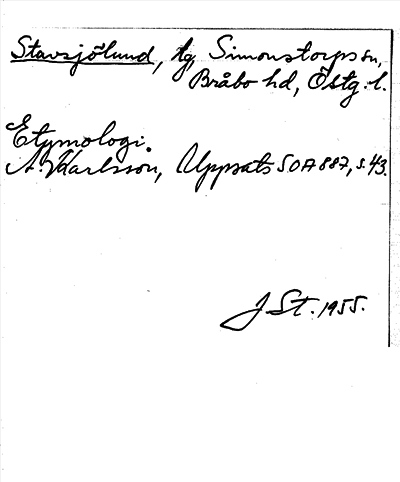 Stavsjölund, tg, Simonstorps sn,
Bråbo hd, Östg. l.
Etymologi.
A. Karlsson, Uppsats SOA 887, s. 43.
J St. 1955.